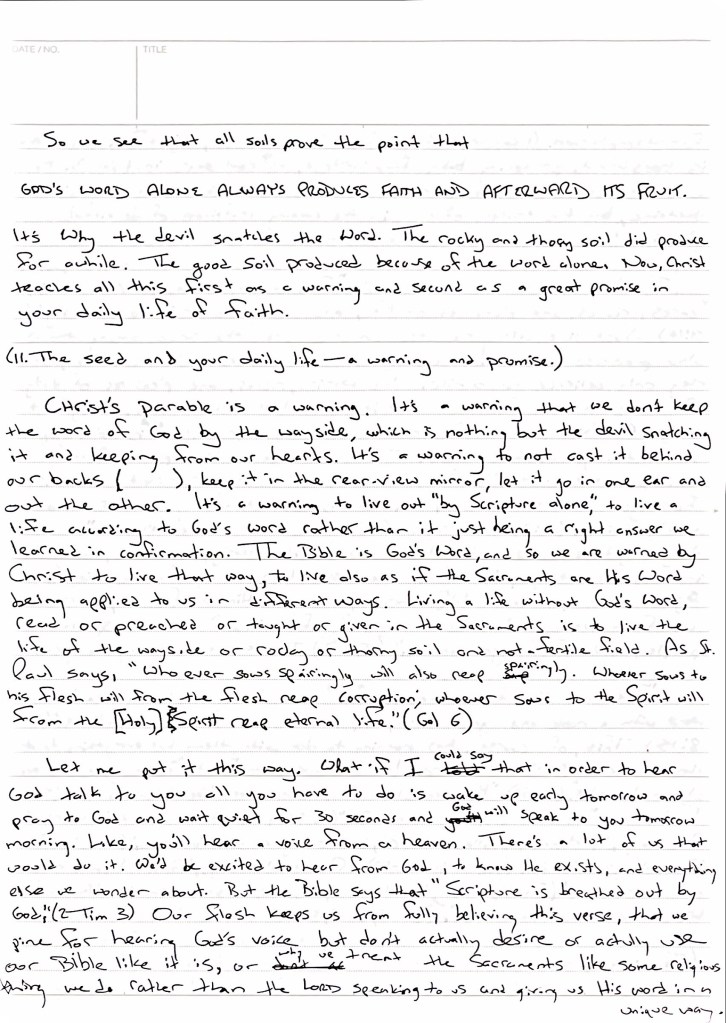 DATE / NO.
TITLE
So we see that all soils prove the point that
GOD'S WORD ALONE ALWAYS PRODUCES FAITH AND AFTERWARD ITS FRUIT.
It's why the devil snatches the Word. The rocky and thorny soil did produce
for awhile. The good soil produced because of the word alone. Now, Christ
teaches all this first as a warning and second as a great promise in
your daily life of faith.
(II. The seed and your daily life — a warning and promise.)
CHrist's parable is a warning. It's a warning that we don't keep
the word of God by the wayside, which is nothing but the devil snatching
it and keeping from our hearts. It's a warning to not cast it behind
our backs ( ), keep it in the rear-view mirror, let it go in one ear and
out the other. It's a warning to live out "by Scripture alone," to live a
life according to God's word rather than it just being a right answer we
learned in confirmation. The Bible is God's Word, and so we are warned by
Christ to live that way, to live also as if the Sacraments are His Word
being applied to us in different ways. Living a life without God's Word,
read or preached or taught or given in the Sacraments is to live the
life of the wayside or rocky or thorny soil and not a fertile field. As St.
Paul says, "Whoever sows spairingly will also reap spairingly. Whoever sows to
his flesh will from the flesh reap corruption; whoever sows to the Spirit will
from the [Holy] Spirit reap eternal life." (Gal 6)
Let me put it this way. What if I could say that in order to hear
God talk to you all you have to do is wake up early tomorrow and
pray to God and wait quiet for 30 seconds and God will speak to you tomorrow
morning. Like, you'll hear a voice from a heaven. There's a lot of us that
would do it. We'd be excited to hear from God, to know He exists, and everything
else we wonder about. But the Bible says that "Scripture is breathed out by
God;" (2 Tim 3) Our flesh keeps us from fully believing this verse, that we
pine for hearing God's voice but don't actually desire or actully use
our Bible like it is, or why we treat the Sacraments like some religious
thing we do rather than the LORD speaking to us and giving us His word in a
unique way.